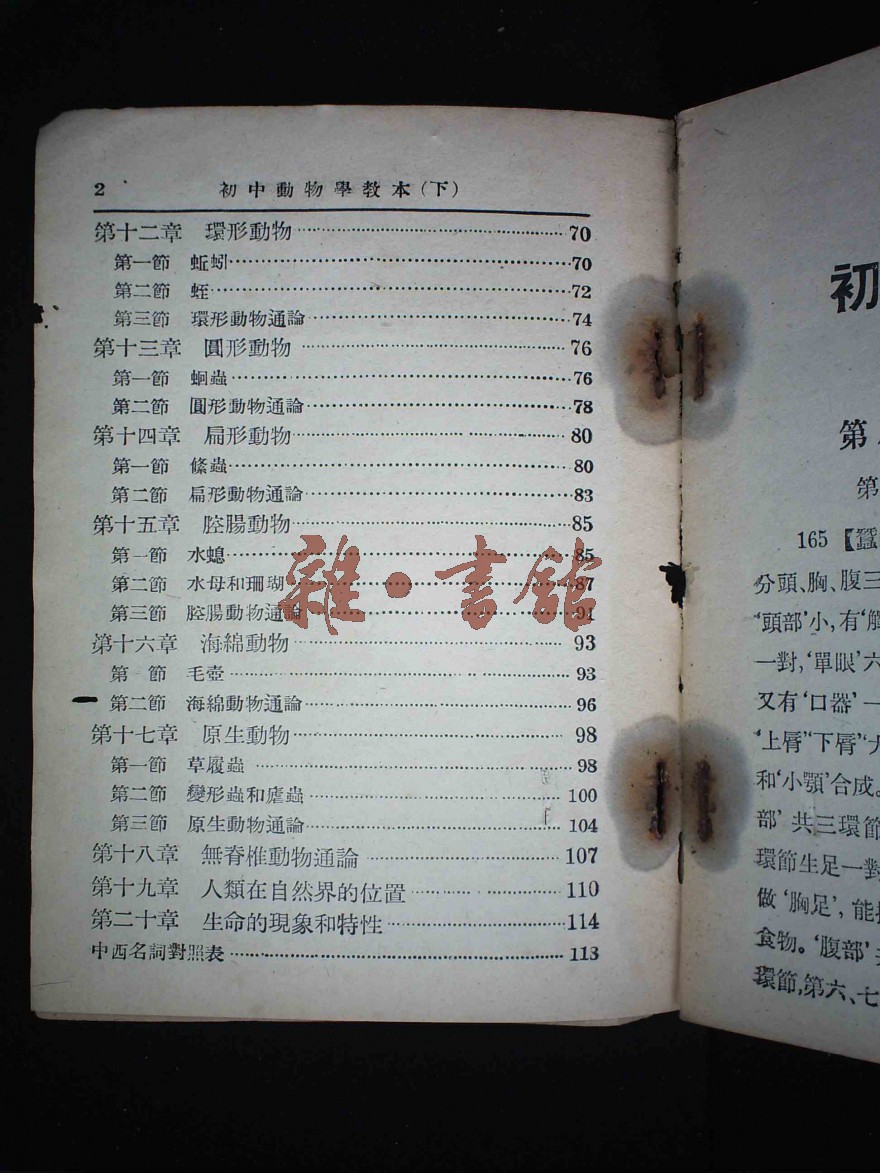 2 初中動物學教本(下)
第十二章 環形動物 70
第一節 蚯蚓 70
第二節 蛭 72
第三節 環形動物通論 74
第十三章 圓形動物 76
第一節 蛔蟲 76
第二節 圓形動物通論 78
第十四章 扁形動物 80
第一節 絛蟲 80
第二節 扁形動物通論 83
第十五章 腔腸動物 85
第一節 水螅 85
第二節 水母和珊瑚 87
第三節 腔腸動物通論 91
第十六章 海綿動物 93
第 節 毛壺 93
第二節 海綿動物通論 96
第十七章 原生動物 98
第一節 草履蟲 98
第二節 變形蟲和瘧蟲 100
第三節 原生動物通論 104
第十八章 無脊椎動物通論 107
第十九章 人類在自然界的位置 110
第二十章 生命的現象和特性 114
中西名詞對照表 113
雜·書館
初
第
第
165【蠶
分頭、胸、腹三
‘頭部’小,有‘觸
一對,‘單眼’六
又有‘口器’一
‘上脣’‘下脣’‘大
和‘小顎’合成。
部’共三環節
環節生足一對
做‘胸足’,能
食物。‘腹部’
環節,第六、七